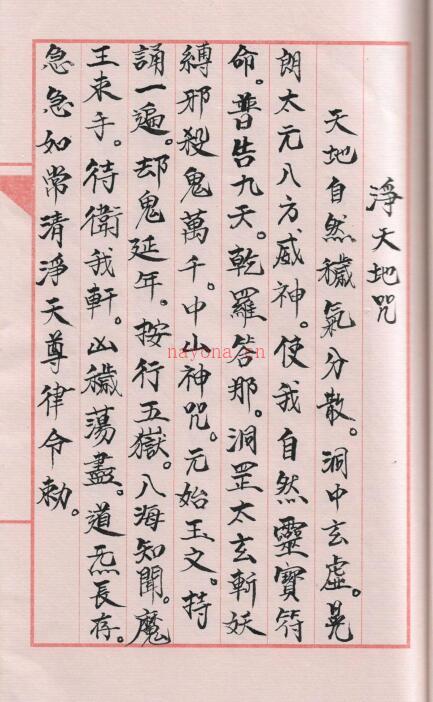 淨天地咒
天地自然穢氣分散。洞中玄虛。晃
朗太元八方威神。使我自然靈寶符
命。普告九天。乾羅答那。洞罡太玄斬妖
縛邪殺鬼萬千。中山神咒。元始玉文。持
誦一遍。却鬼延年。按行五嶽。八海知聞。魔
王束手。待衛我軒。凶穢蕩盡。道炁長存。
急急如常清淨天尊律令勅。
nayona.cn